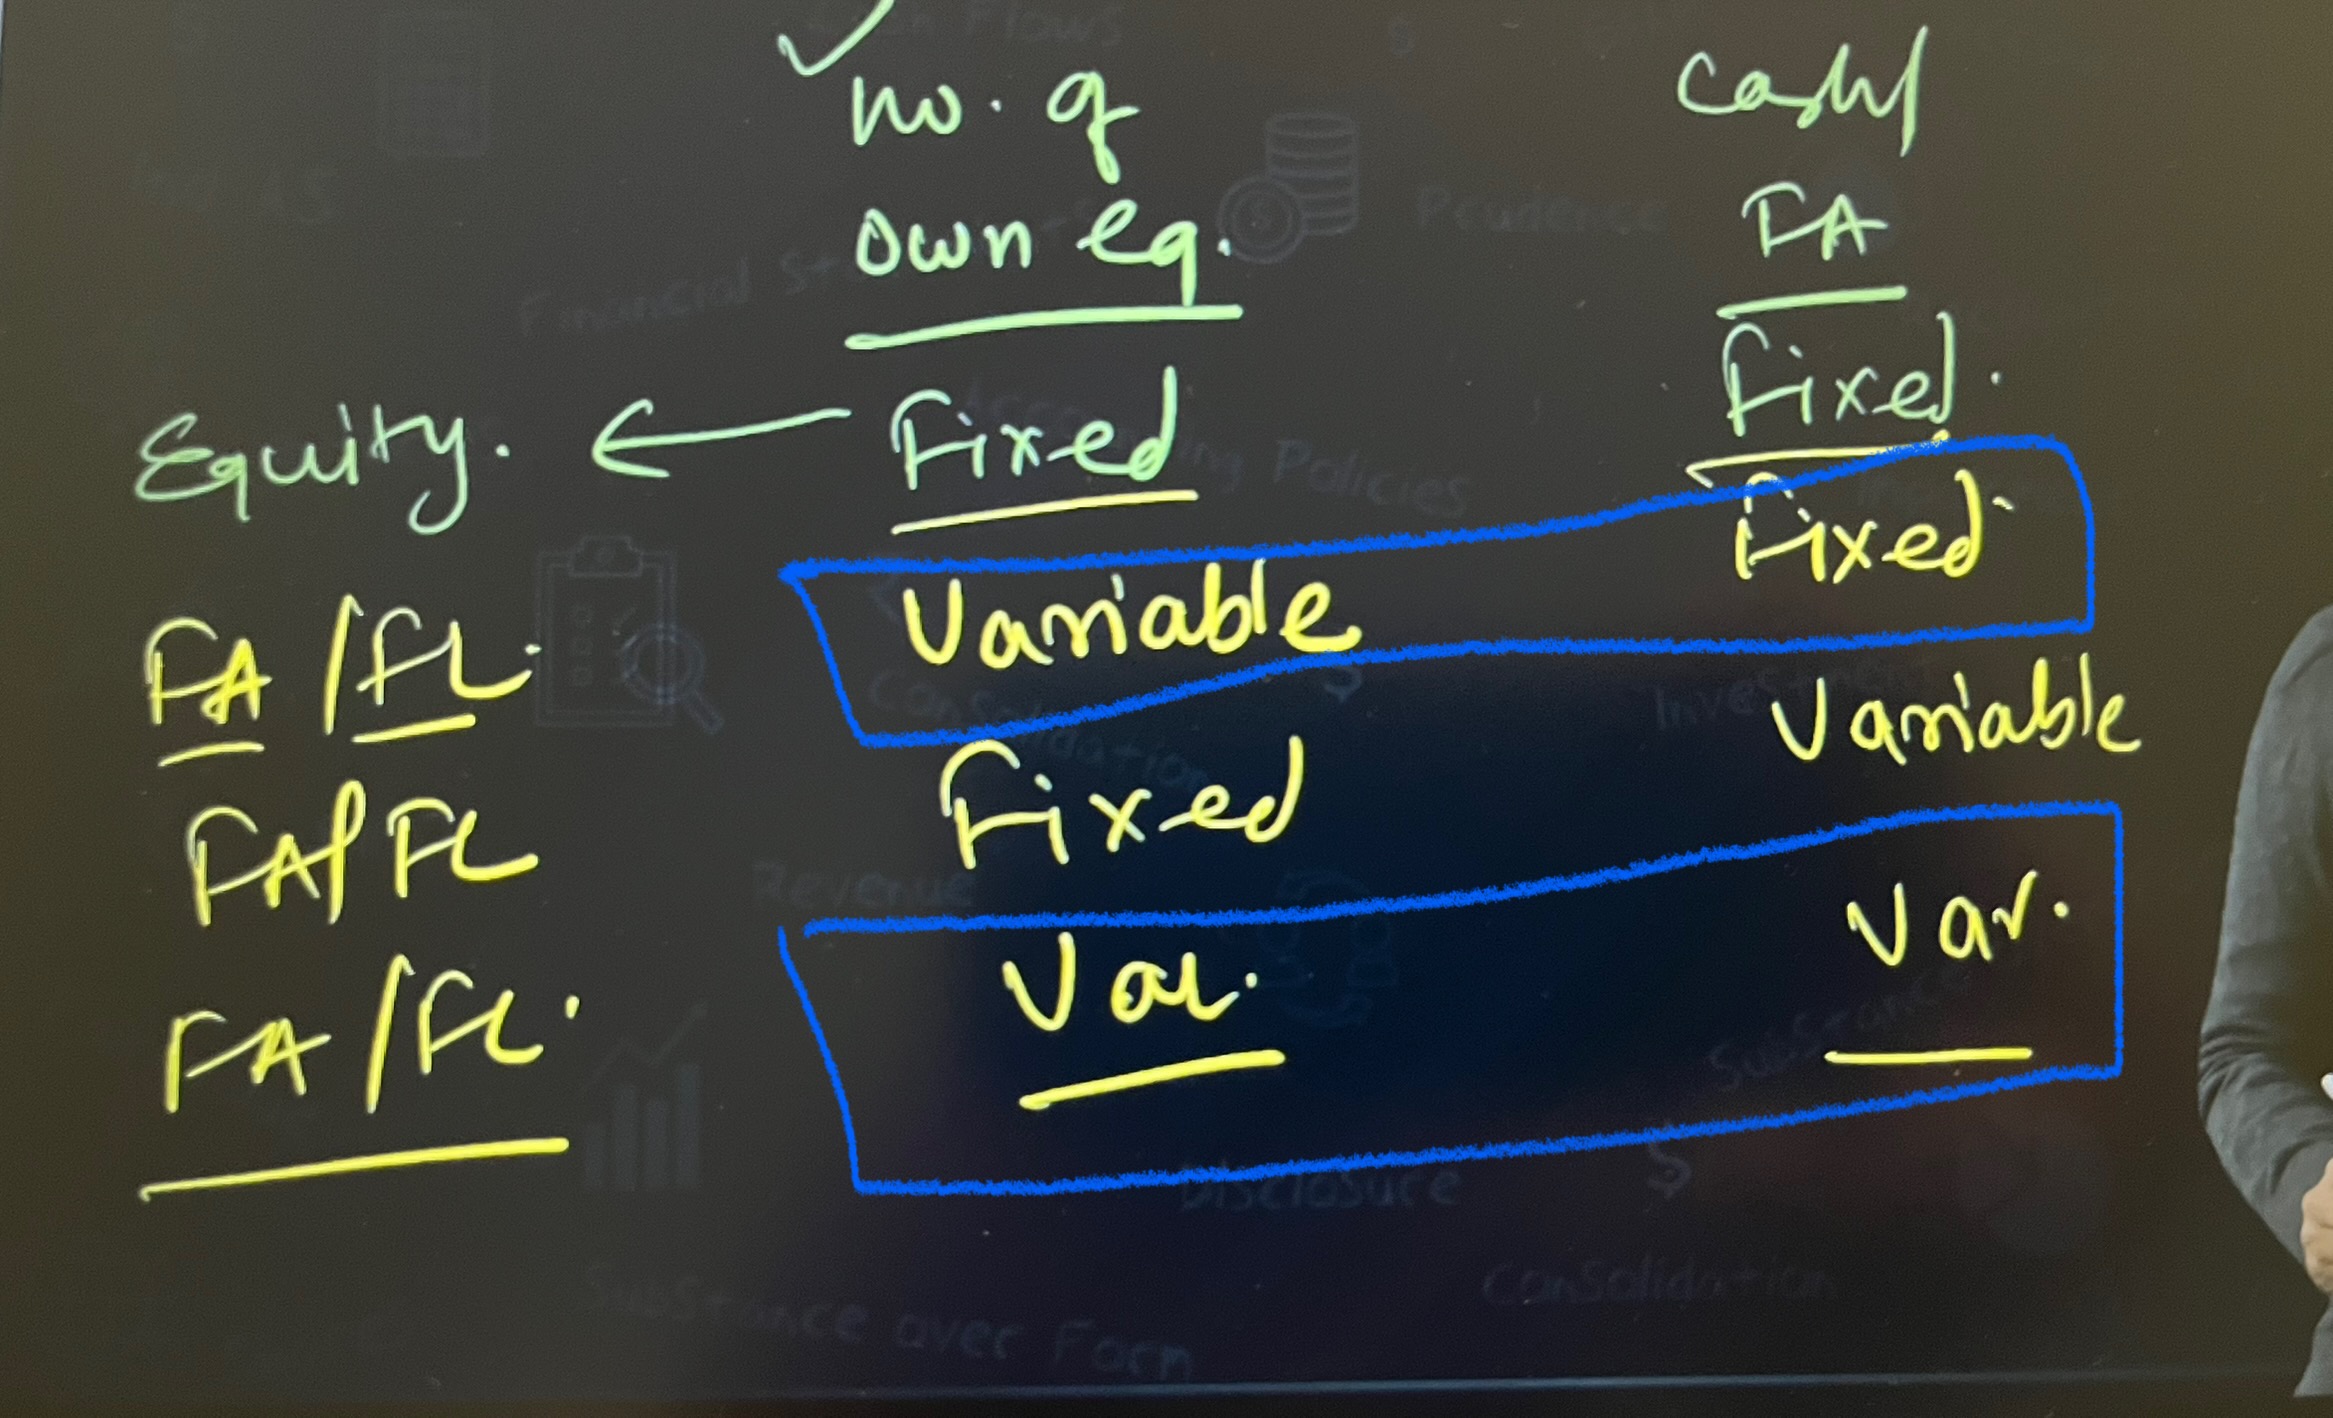 no. of cash/
own eq. FA
Equity. ← Fixed Fixed.
FA/FL. Variable Fixed.
FA/FL Fixed Variable
FA/FL. Var. Var.
Flows
$
Prudence
Financial St
Accounting Policies
Consolidation $ Investment
Revenue
Substance
Disclosure $
Consolidation
Substance over Form